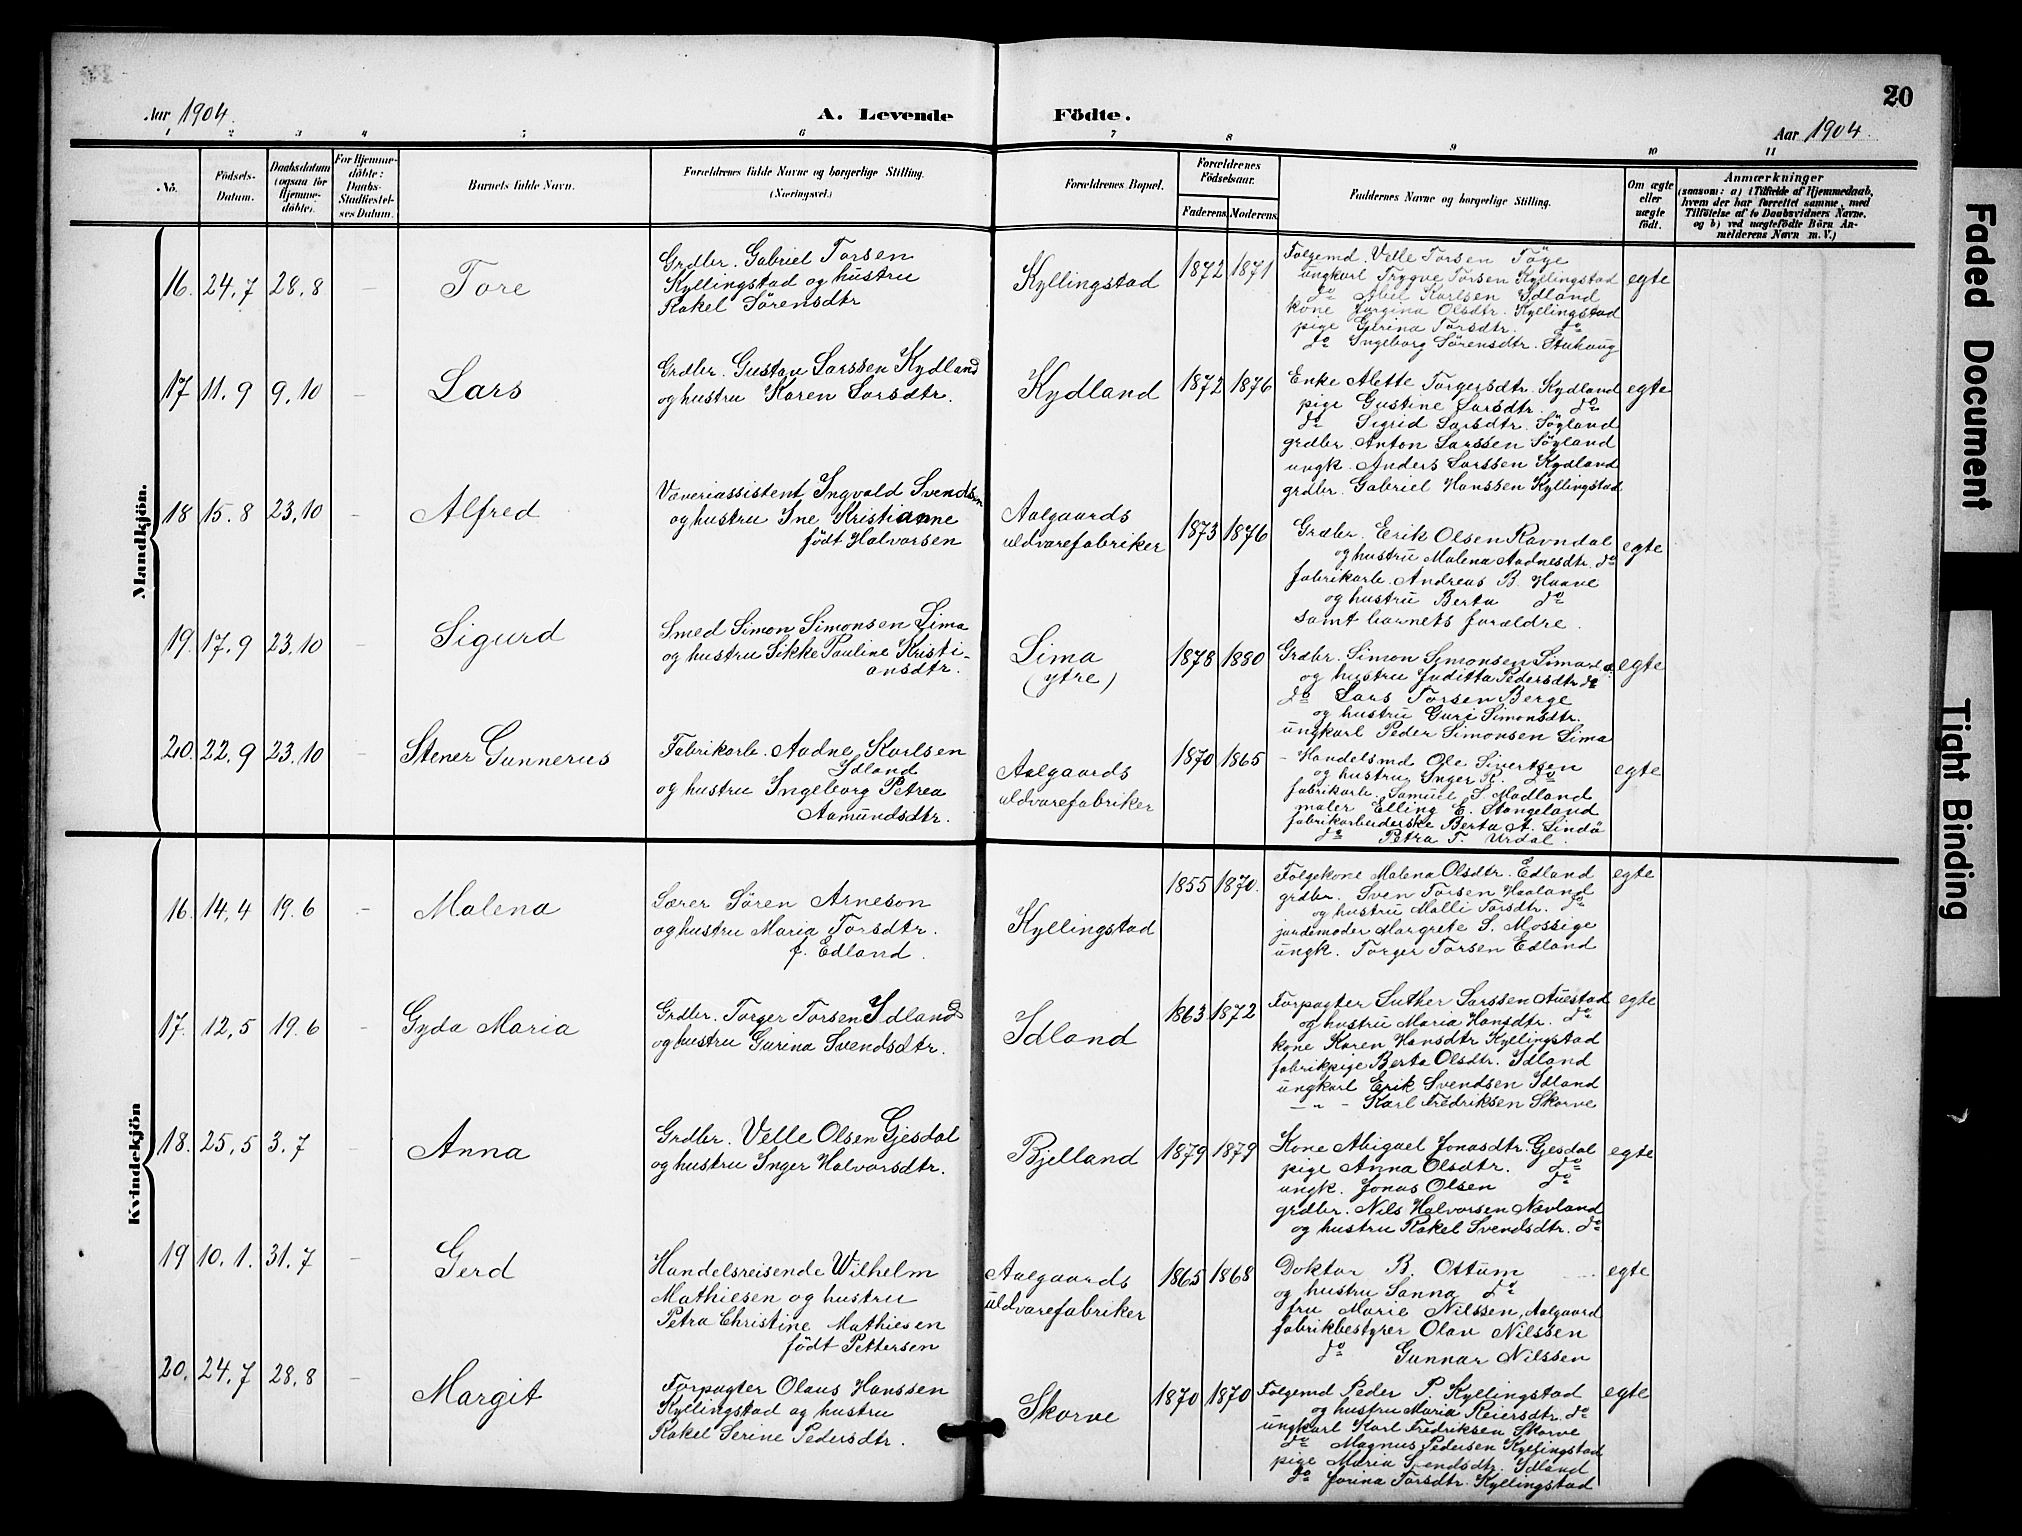 20
Aar 1904.
A. Levende Födte.
Aar 1904.
1 2 3 4 5 6 7 8 9 10 11
No.
Födsels-
Datum.
Daabsdatum
(ogsaa for
Hjemme-
döbte).
For Hjemme-
döbte:
Daabs-
Stadfæstel-
ses Datum.
Barnets fulde Navn.
Forældrenes fulde Navne og borgerlige Stilling.
(Næringsvei.)
Forældrenes Bopæl.
Forældrenes
Födselsaar.
Faderens. Moderens.
Faddernes Navne og borgerlige Stilling.
Om ægte
eller
uægte
födt.
Anmærkninger
(saasom: a) i Tilfælde af Hjemmedaab,
hvem der har forrettet samme, med
Tilföielse af to Daabsvidners Navne.
og b) ved uægtefödte Börn An-
melderens Navn m. V.)
Mandkjön.
16. 24.7 28.8 – Tore
Grdbr. Gabriel Torsen
Kyllingstad og hustru
Rakel Sörensdtr
Kyllingstad
1872 1871
Følgemd. Velle Torsen Töge
ungkarl Trygve Torsen Kyllingstad
do Abel Karlsen Idland
kone Jorgina Olsdtr. Kyllingstad
pige Gurina Torsdtr. do
do Ingeborg Sörensdtr.
egte
17 11.9 9.10 – Lars
Grdbr. Gustav Larssen Kydland
og hustru Karen Larsdtr.
Kydland
1872 1876
Enke Alette Torgersdtr. Kydland
pige Gustine Larsdtr. do
do Sigrid Larsdtr. Söyland
grdbr. Anton Larssen Söyland
ungk. Anders Larssen Kydland
grdbr. Gabriel Hanssen Kyllingstad
egte
18 15.8 23.10 – Alfred
Væveriassistent Ingvald Svendsen
og hustru Ine Kristianne
födt Halvorsen
Aalgaards
uldvarefabriker
1873 1876
Grdbr. Erik Olsen Ravndal
og hustru Malena Aadnesdtr. do
fabrikarb. Andreas B. Haave
og hustru Berta do
samt barnets forældre.
egte
19. 17.9 23.10 – Sigurd
Smed Simon Simonsen Lima
og hustru Sikke Pauline Kristi-
ansdtr.
Lima
(ytre)
1878 1880
Grdbr. Simon Simonsen Lima
og hustru Juditta Pedersdtr do
do Lars Torsen Berge
og hustru Guri Simonsdtr.
ungkarl Peder Simonsen Lima
egte
20. 22.9 23.10 – Stener Gunnerus
Fabrikarb. Aadne Karlsen
Idland
og hustru Ingeborg Petrea
Aamundsdtr.
Aalgaards
uldvarefabriker
1870 1865
- Handelsmd Ole Sivertsen
og hustru Inger R. do
fabrikarb. Samuel S. Madland
maler Elling E. Stangeland
fabrikarbeiderske Berta A. Lindö
do Petra T. Urdal.
egte
Kvindekjön
16. 14.4 19.6 – Malena
Lærer Sören Arneson
og hustru Maria Torsdtr.
f. Edland.
Kyllingstad
1855 1870.
Følgekone Malena Olsdtr. Edland
grdbr. Sven Torsen Haaland
og hustru Malli Torsdtr. do
jordemoder Margrete S. Mossige
ungk. Torger Torsen Edland
egte
17. 12.5 19.6 – Gyda Maria
Grdbr. Torger Torsen Idland
og hustru Gurina Svendsdtr.
Idland
1863 1872
Forpagter Luther Larssen Auestad
og hustru Maria Hansdtr. do
kone Karen Hansdtr Kyllingstad
fabrikpige Berta Olsdtr. Idland
ungkarl Erik Svendsen Idland
– " – Karl Fredriksen Skorve
egte
18. 25.5 3.7 – Anna
Grdbr. Velle Olsen Gjesdal
og hustru Inger Halvorsdtr.
Bjelland
1879 1879
Kone Abigael Jonasdtr. Gjesdal
pige Anna Olsdtr. do
ungk. Jonas Olsen do
grdbr. Nils Halvorsen Nævland
og hustru Rakel Svendsdtr. do
egte
19 10.1. 31.7 – Gerd
Handelsreisende Wilhelm
Mathiesen og hustru
Petra Christine Mathiesen
födt Pettersen
Aalgaards
uldvarefabriker
1865 1868
Doktor B. Ottum
og hustru Sanna do
fru Marie Nilssen, Aalgaard
fabrikbestyrer Olav Nilssen
do Gunnar Nilssen
egte
20. 24.7 28.8 – Margit
Forpagter Olaus Hanssen
Kyllingstad og hustru
Rakel Serine Pedersdtr.
Skorve
1870 1870
Følgemd Peder P. Kyllingstad
og hustru Maria Reiersdtr. do
ungkarl Karl Fredriksen Skorve
do Magnus Pedersen Kyllingstad
pige Maria Svendsdtr. Idland
do Jorina Torsdtr. Kyllingstad
egte
Faded Document
Tight Binding